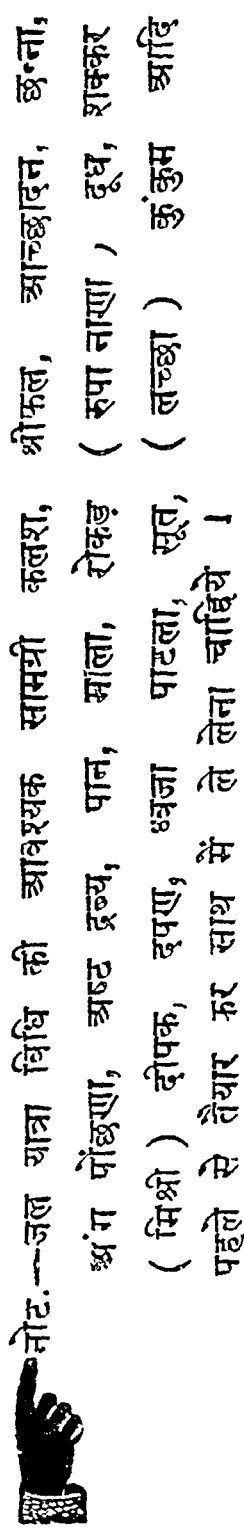 नोट.—जल यात्रा विधि की आवश्यक सामग्री कलश, श्रीफल, आच्छादन, छन्ना,
अंग पोंछणा, अष्ट द्रव्य, पान, माला, रोकड़ ( रुपा नाणा ) , दूध, शक्कर
( मिश्री ) दीपक, दर्पण, ध्वजा पाटला, सूत, ( लच्छा ) कुंकुम आदि
पहले से तैयार कर साथ में ले लेना चाहिये ।